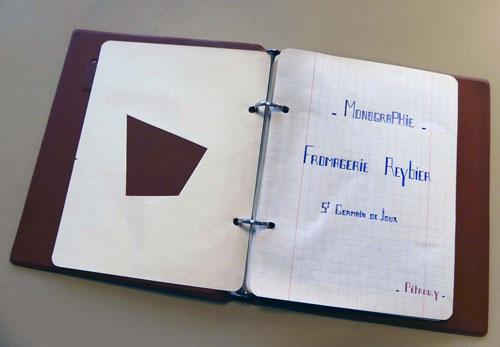 - MONOGRAPHie -
FROMAGERIE ReyBIER
St GERMAIN DE JOUX
- Pétroz.y -